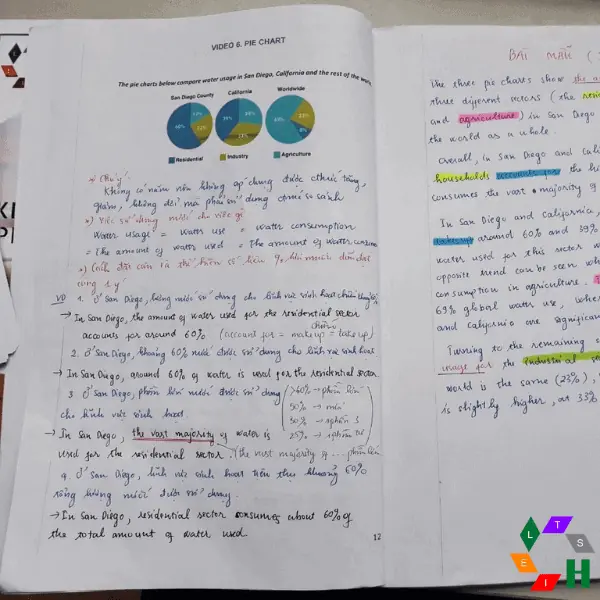 VIDEO 6. PIE CHART
The pie charts below compare water usage in San Diego, California and the rest of the world
San Diego County
California
Worldwide
60%
39%
23%
69%
Residential
Industry
Agriculture
*) Chú ý:
Không có năm nên không áp dụng được cthức tăng,
giảm, không đổi mà phải sử dụng cthức so sánh
*) Việc sử dụng nước cho việc gì
Water usage = water use = water consumption
= The amount of water used = The amount of water
VD 1. Ở San Diego, lượng nước sử dụng cho lĩnh vực sinh hoạt chiếm
→ In San Diego, the amount of water used for the residential sector
accounts for around 60% (account for = make up = take up)
chiếm
2. Ở San Diego, khoảng 60% nước được sử dụng cho lĩnh vực sinh hoạt
→ In San Diego, around 60% of water is used for the residential sector
3. Ở San Diego, phần lớn nước được sử dụng
cho lĩnh vực sinh hoạt.
>60% → phần lớn
50% → nửa
30% → 
25% → 
→ In San Diego, the vast majority of water is
used for the residential sector. (the vast majority of ... phần lớn
4. Ở San Diego, lĩnh vực sinh hoạt tiêu thụ khoảng 60%
tổng lượng nước được sử dụng.
→ In San Diego, residential sector consumes about 60% of
the total amount of water used.
12
BÀI MẪU (
The three pie charts show the
three different sectors (the
and agriculture) in San Diego
the world as a whole.
Overall, in San Diego and
households accounts for the
consumes the vast majority of
In San Diego and California,
around 60% and 39%
water used for this sector
opposite trend can be seen
consumption in agriculture.
69% global water use,
and California are
Turning to the remaining
usage for the industrial
world is the same (23%),
is slightly higher, at 33%
I
E
L
T
S
H